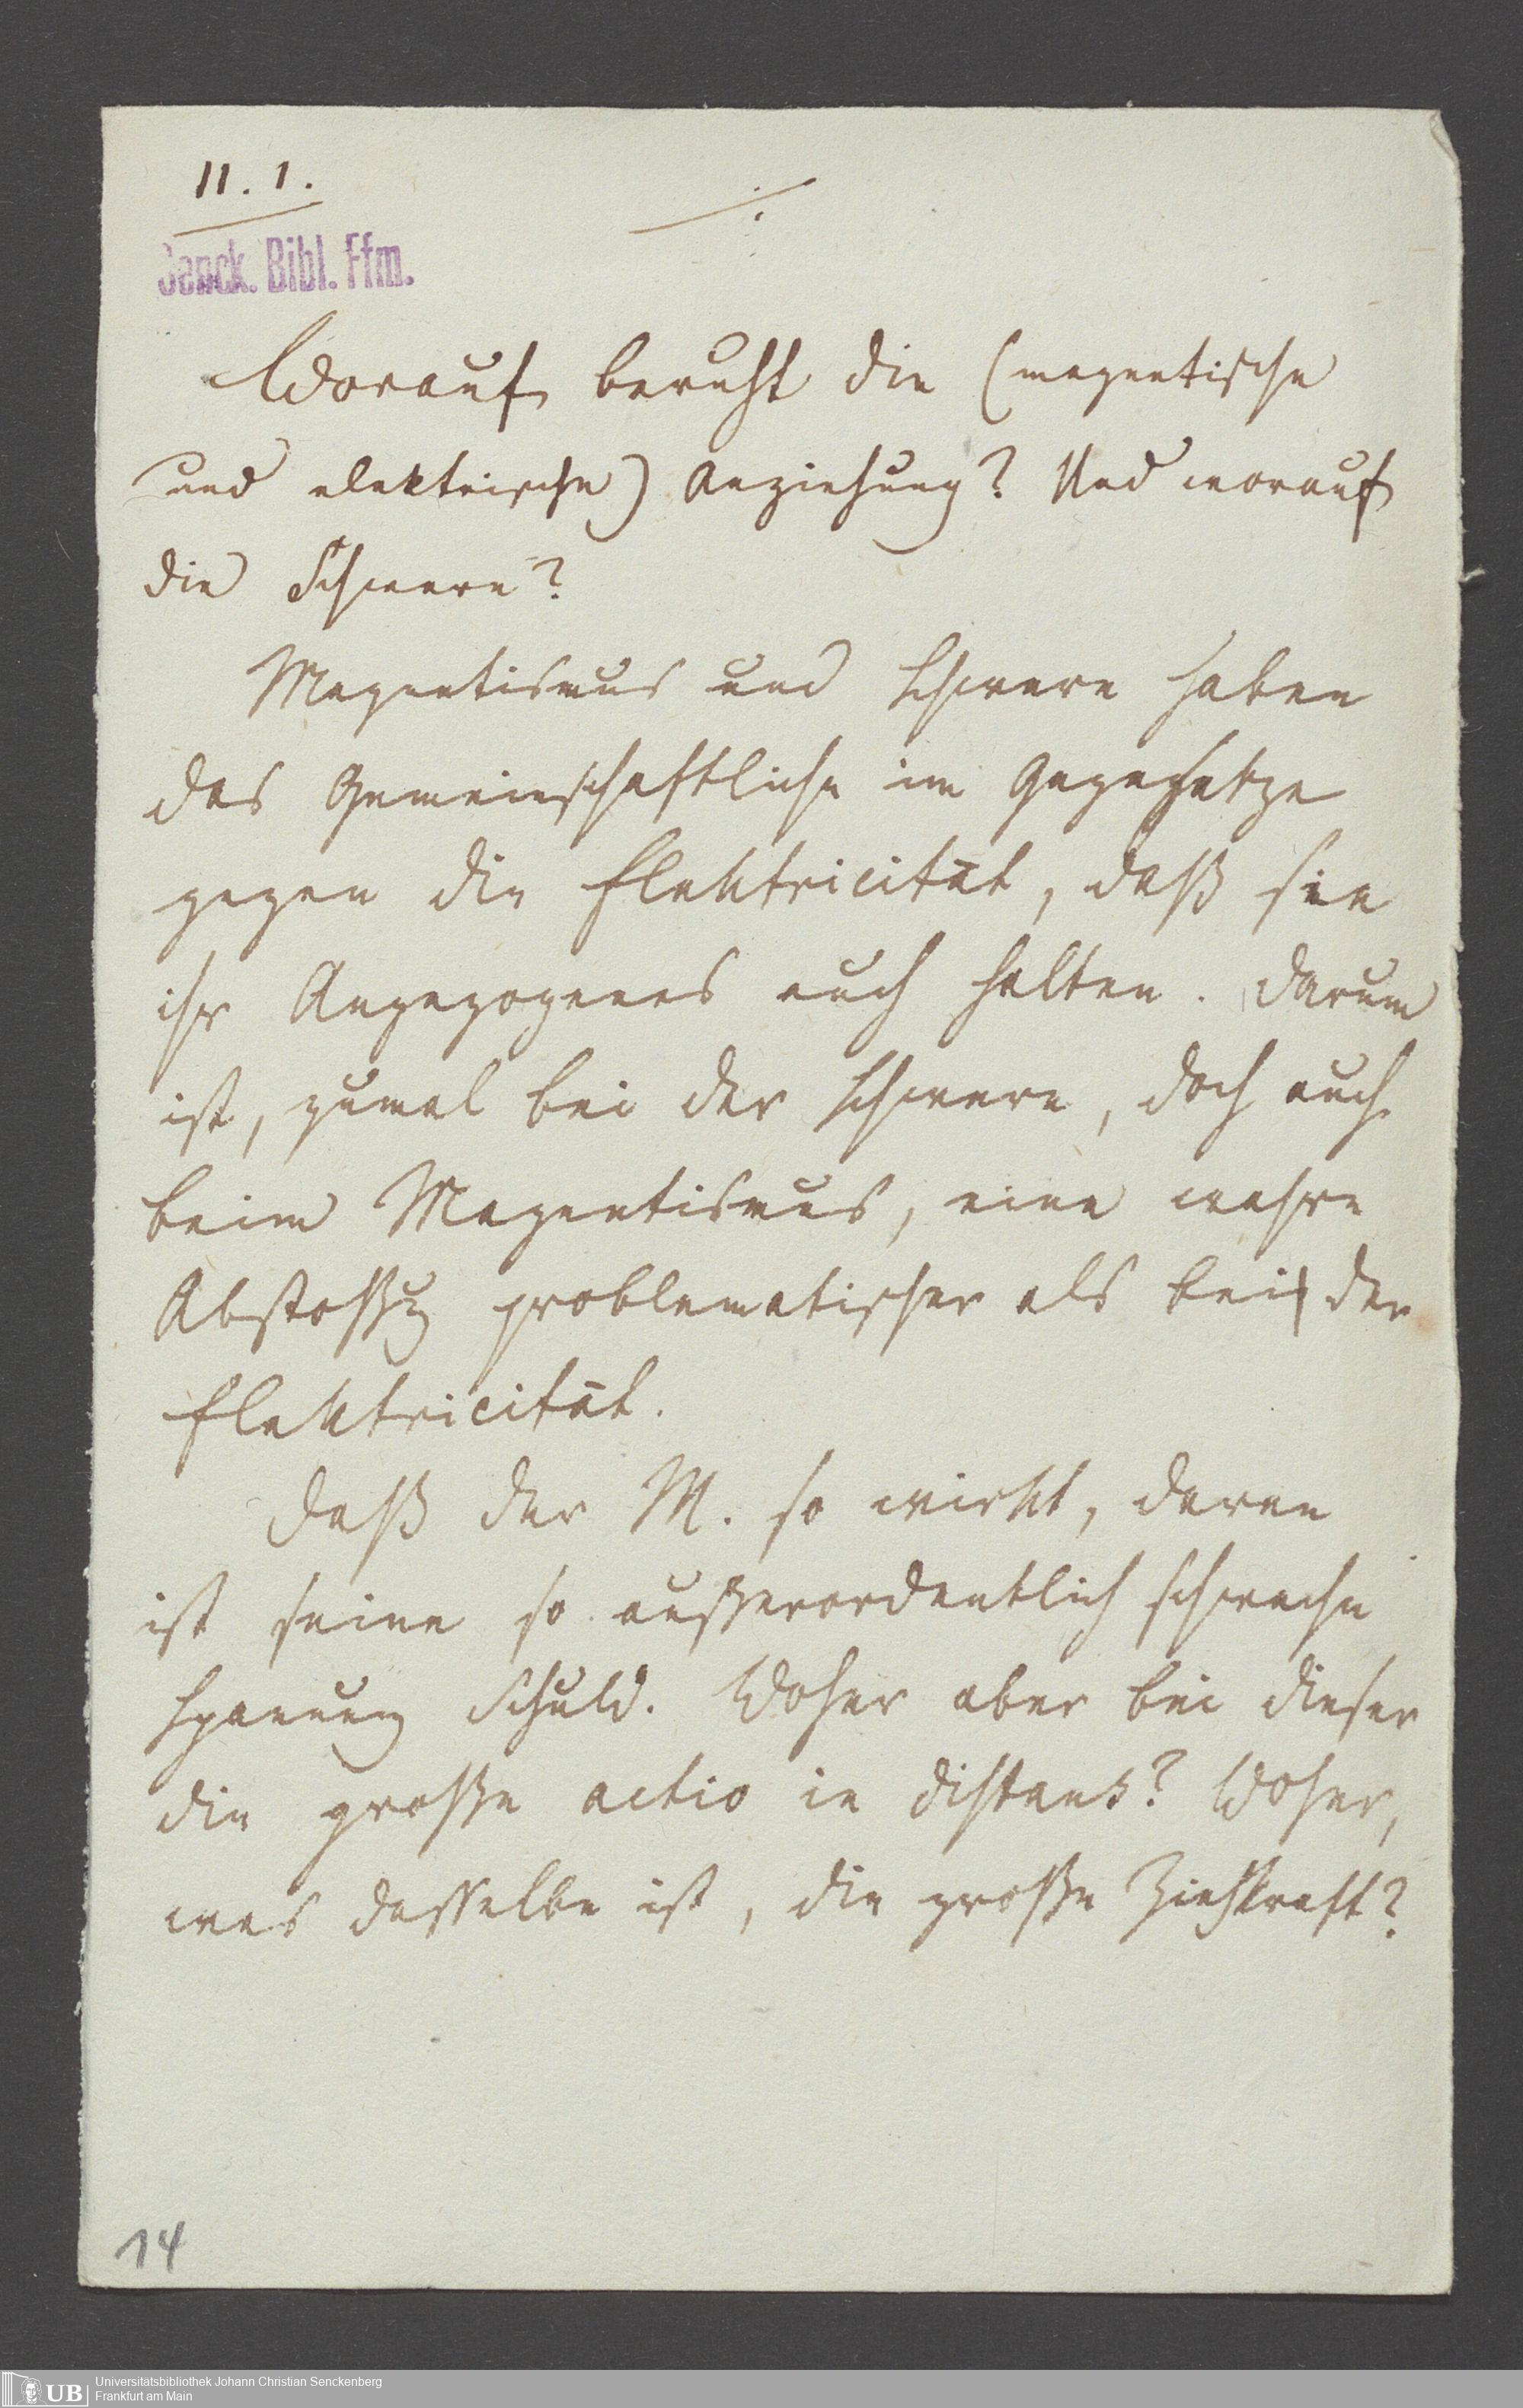 II. 1.
./.
Senck. Bibl. Ffm.
Worauf beruht die (magnetische
und elektrische) Anziehung? Und worauf
die Schwere?
Magnetismus und Schwere haben
das Gemeinschaftliche im Gegensatze
gegen die Elektricität, daß sie
ihr Angezogenes auch halten. Darum
ist, zumal bei der Schwere, doch auch
beim Magnetismus, eine wahre
Abstoßung problematischer als bei der
Elektricität.
Daß der M. so wirkt, daran
ist seine so außerordentlich schwache
Spannung Schuld. Woher aber bei dieser
die große actio in distans? Woher,
was dasselbe ist, die große Ziehkraft?
14
UB
Universitätsbibliothek Johann Christian Senckenberg
Frankfurt am Main